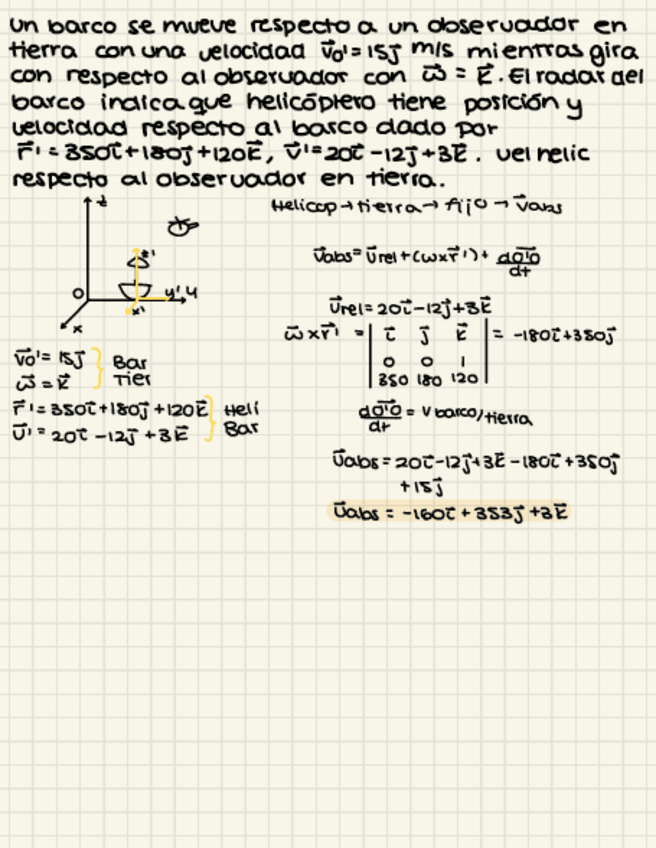 un barco se mueve respecto a un observador en
tierra con una velocidad v⃗o' = 15j⃗ m/s mientras gira
con respecto al observador con ω⃗ = k⃗. El radar del
barco indica que helicóptero tiene posición y
velocidad respecto al barco dado por
r⃗' = 350i⃗+180j⃗+120k⃗, v⃗'=20i⃗ -12j⃗+3k⃗. vel helic
respecto al observador en tierra.
z
z'
O
y', y
x'
x
v⃗o' = 15j⃗ } Bar
ω⃗ = k⃗ } Tier
r⃗' = 350i⃗+180j⃗+120k⃗ } Heli
v⃗' = 20i⃗ -12j⃗ +3k⃗ } Bar
Helicop → tierra → fijo → v⃗abs
v⃗abs = v⃗rel + (ω×r⃗') + do⃗'o/dt
v⃗rel = 20i⃗-12j⃗+3k⃗
ω⃗ × r⃗' = | i⃗ j⃗ k⃗ | = -180i⃗+350j⃗
0 0 1
350 180 120
do⃗'o/dt = v barco/tierra
v⃗abs = 20i⃗-12j⃗+3k⃗ -180i⃗ +350j⃗
+15j⃗
v⃗abs = -160i⃗ + 353j⃗ +3k⃗